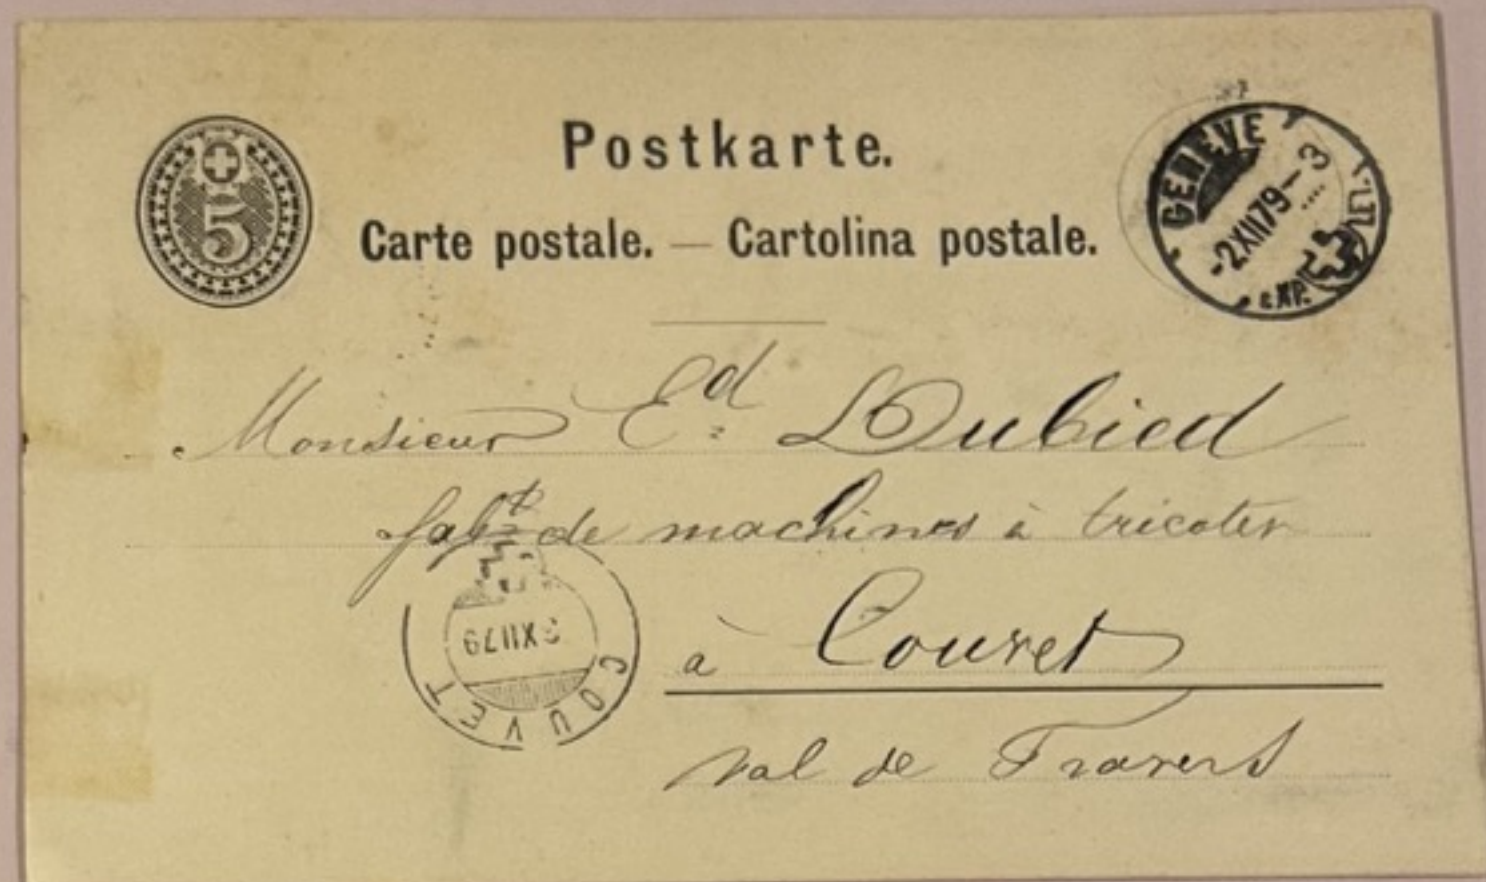 5
Postkarte.
Carte postale. — Cartolina postale.
GENÈVE
-2XII79-3
EXP. LETT.
Monsieur Ed Dubied
fabt de machines à tricoter
à Couvet
Val de Travers
3XII79
COUVET